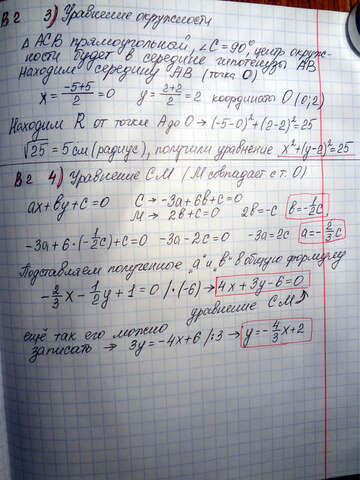 В2 3) Уравнение окружности
Δ ACB прямоугольной, ∠C = 90°, центр окруж-
ности будет в середине гипотенузы AB
Находим середину AB (точка O)
x = (-5+5)/2 = 0 y = (2+2)/2 = 2 координаты O (0;2)
Находим R от точки A до O → (-5-0)²+(2-2)²=25
√25 = 5 см (радиус), получили уравнение x²+(y-2)²=25
В2 4) Уравнение CM (M совпадает с т. O)
ax+by+c=0 C → -3a+6b+c=0
M → 2b+c=0 2b=-c b=-1/2c
-3a+6·(-1/2c)+c=0 -3a-2c=0 -3a=2c a=-2/3c
Подставляем полученные "a" и "b" в общую формулу
-2/3x-1/2y+1=0 /·(-6) → 4x+3y-6=0
уравнение CM
ещё так его можно
записать → 3y=-4x+6 /:3 → y=-4/3x+2